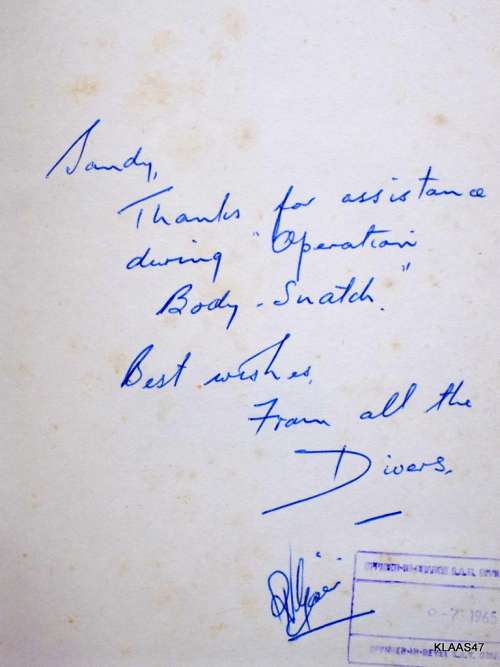 Sandy,
Thanks for assistance
during "Operation
Body-Snatch."
Best wishes,
From all the
Divers.
1965
KLAAS47